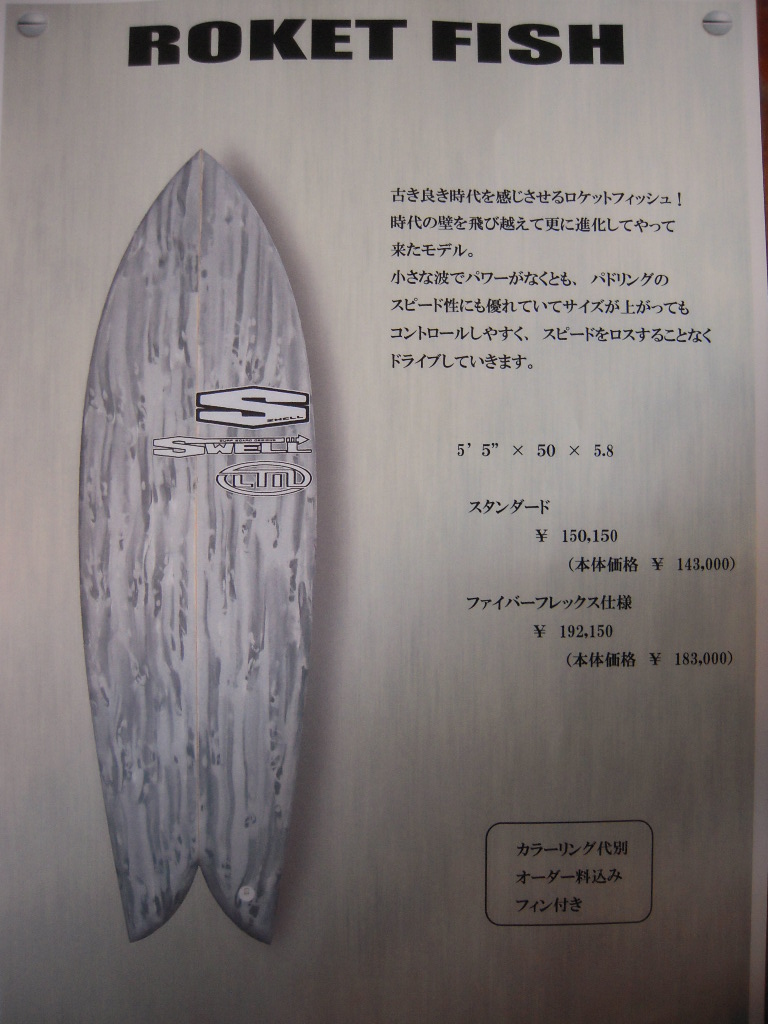 ROKET FISH
古き良き時代を感じさせるロケットフィッシュ！
時代の壁を飛び越えて更に進化してやって
来たモデル。
小さな波でパワーがなくとも、パドリングの
スピード性にも優れていてサイズが上がっても
コントロールしやすく、スピードをロスすることなく
ドライブしていきます。
SWELL
5' 5" × 50 × 5.8
スタンダード
¥ 150,150
(本体価格 ¥ 143,000)
ファイバーフレックス仕様
¥ 192,150
(本体価格 ¥ 183,000)
カラーリング代別
オーダー料込み
フィン付き